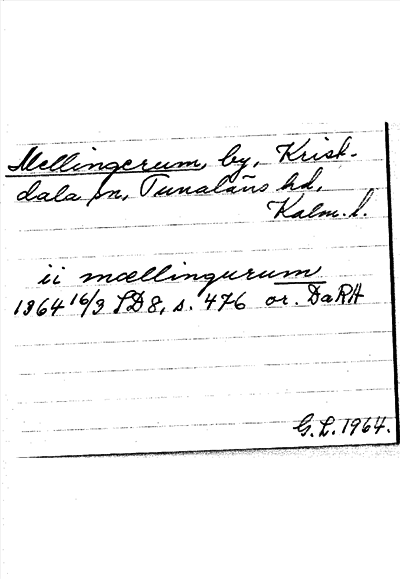 Mellingerum, by, Krist-
dala sn, Tunaläns hd,
Kalm. l.
ii mællingurum
1364 16/3 SD 8, s. 476 or. DaRA
G. L. 1964.